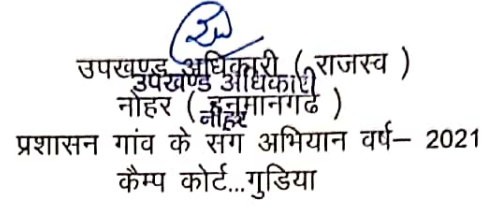 उपखण्ड अधिकारी ( राजस्व )
उपखण्ड अधिकारी
नोहर ( हनुमानगढ )
नोहर
प्रशासन गांव के संग अभियान वर्ष– 2021
कैम्प कोर्ट...गुडिया